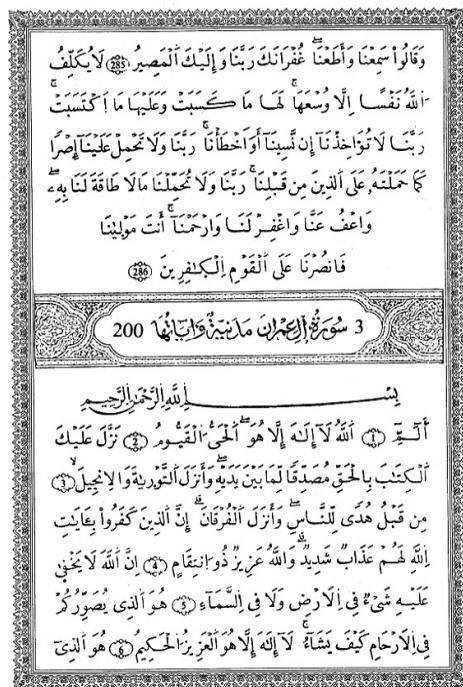 وَقَالُواْ سَمِعْنَا وَأَطَعْنَا ۖ غُفْرَانَكَ رَبَّنَا وَإِلَيْكَ اَ۬لْمَصِيرُ 285 لَا يُكَلِّفُ
اُ۬للَّهُ نَفْسًا اِلَّا وُسْعَهَا ۚ لَهَا مَا كَسَبَتْ وَعَلَيْهَا مَا اَ۪كْتَسَبَتْ ۚ
رَبَّنَا لَا تُوَ۬اخِذْنَآ إِن نَّسِينَآ أَوَ اَخْطَأْنَا ۚ رَبَّنَا وَلَا تَحْمِلْ عَلَيْنَآ إِصْرًا
كَمَا حَمَلْتَهُۥ عَلَى اَ۬لذِينَ مِن قَبْلِنَا ۚ رَبَّنَا وَلَا تُحَمِّلْنَا مَا لَا طَاقَةَ لَنَا بِهِۦ ۖ
وَاعْفُ عَنَّا وَاغْفِرْ لَنَا وَارْحَمْنَآ ۚ أَنتَ مَوْلَىٰنَا
فَانصُرْنَا عَلَى اَ۬لْقَوْمِ اِ۬لْكَـٰفِرِينَ 286
3 سُورَةُ ءَالِ عِمْرَانَ مَدَنِيَّةٌ وَءَايَاتُهَا 200
بِسْمِ اِ۬للَّهِ اِ۬لرَّحْمَـٰنِ اِ۬لرَّحِيمِ
أَلَٓمِّٓ 1 اَ۬للَّهُ لَآ إِلَـٰهَ إِلَّا هُوَ ۖ اَ۬لْحَىُّ اُ۬لْقَيُّومُ 2 نَزَّلَ عَلَيْكَ
اَ۬لْكِتَـٰبَ بِالْحَقِّ مُصَدِّقًا لِّمَا بَيْنَ يَدَيْهِ ۖ وَأَنزَلَ اَ۬لتَّوْر۪ىٰةَ وَالِانجِيلَ 3
مِن قَبْلُ هُدًى لِّلنَّاسِ ۖ وَأَنزَلَ اَ۬لْفُرْقَانَ ۗ إِنَّ اَ۬لذِينَ كَفَرُواْ بِـَٔايَـٰتِ
اِ۬للَّهِ لَهُمْ عَذَابٌ شَدِيدٌ ۗ وَاللَّهُ عَزِيزٌ ذُو اُ۪نتِقَامٍ 4 اِنَّ اَ۬للَّهَ لَا يَخْفَىٰ
عَلَيْهِ شَىْءٌ فِى اِ۬لَارْضِ وَلَا فِى اِ۬لسَّمَآءِ 5 هُوَ اَ۬لذِى يُصَوِّرُكُمْ
فِى اِ۬لَارْحَامِ كَيْفَ يَشَآءُ ۚ لَآ إِلَـٰهَ إِلَّا هُوَ اَ۬لْعَزِيزُ اُ۬لْحَكِيمُ 6 هُوَ اَ۬لذِىٓ